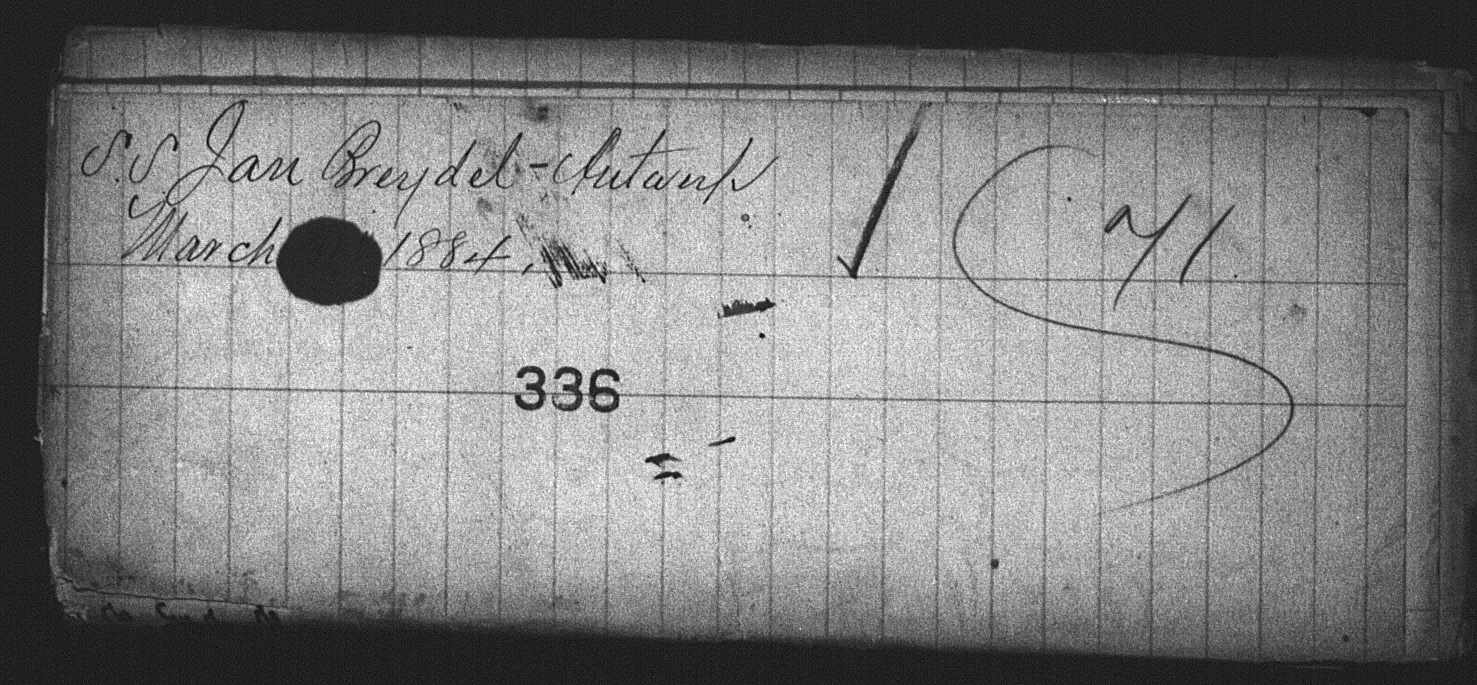 S.S. Jan Breydel - Antwerp
March 1884.
336